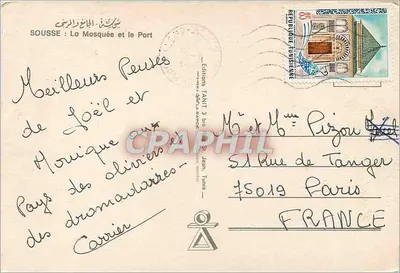 سوسة - الجامع والمرسى
SOUSSE : La Mosquée et le Port
REPUBLIQUE TUNISIENNE
Meilleures Pensées
de Joël et
Monique au
Pays des oliviers et
des dromadaires -
Carrier
Editions TANIT 3 bis Jean, Tunis
CPAPHIL
Mr et Mme Pizon
51 Rue de Tanger
75019 Paris
FRANCE